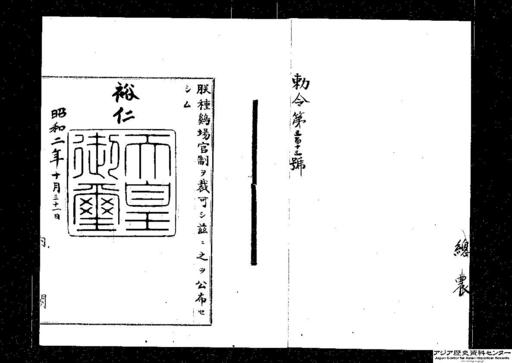 総農
勅令第三百十三號
朕種鷄場官制ヲ裁可シ茲ニ之ヲ公布セ
シム
裕仁
天皇
御璽
昭和二年十月三十一日
内閣
アジア歴史資料センター
Japan Center for Asian Historical Records